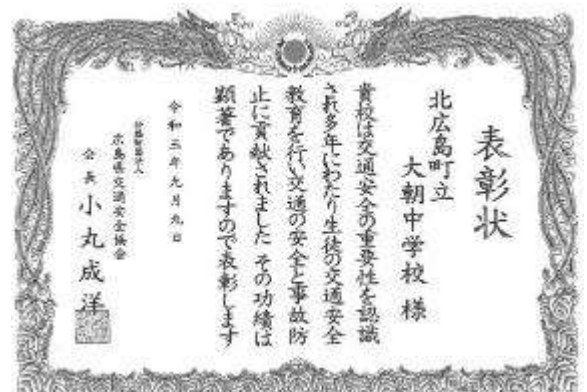 表彰状
北広島町立
大朝中学校 様
貴校は交通安全の重要性を認識
され多年にわたり生徒の交通安全
教育を行い交通の安全と事故防
止に貢献されました その功績は
顕著でありますので表彰します
令和三年九月九日
広島県交通安全協会
会長 小丸成洋